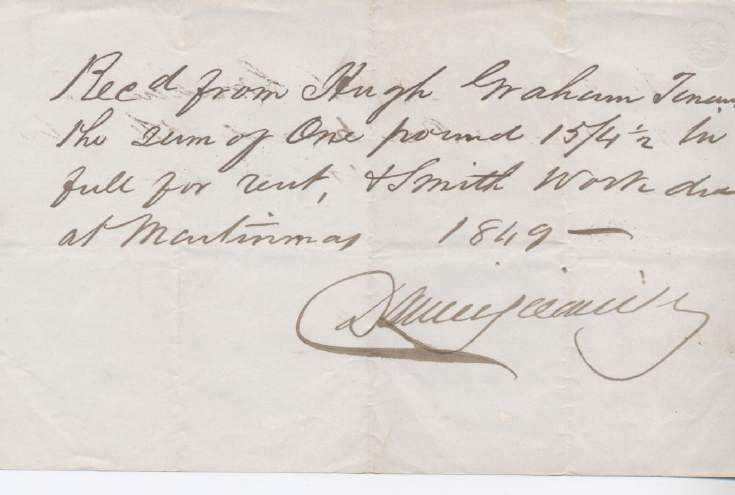 Recd from Hugh Graham Tenan
the sum of One pound 15/4½ in
full for rent, & Smith Work due
at Martinmas 1849 —